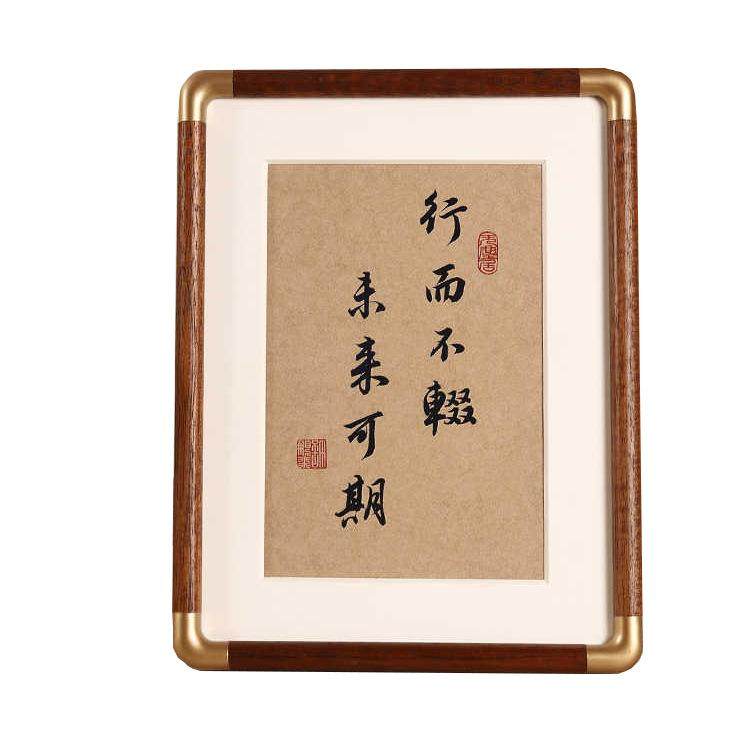 行而不辍
未来可期